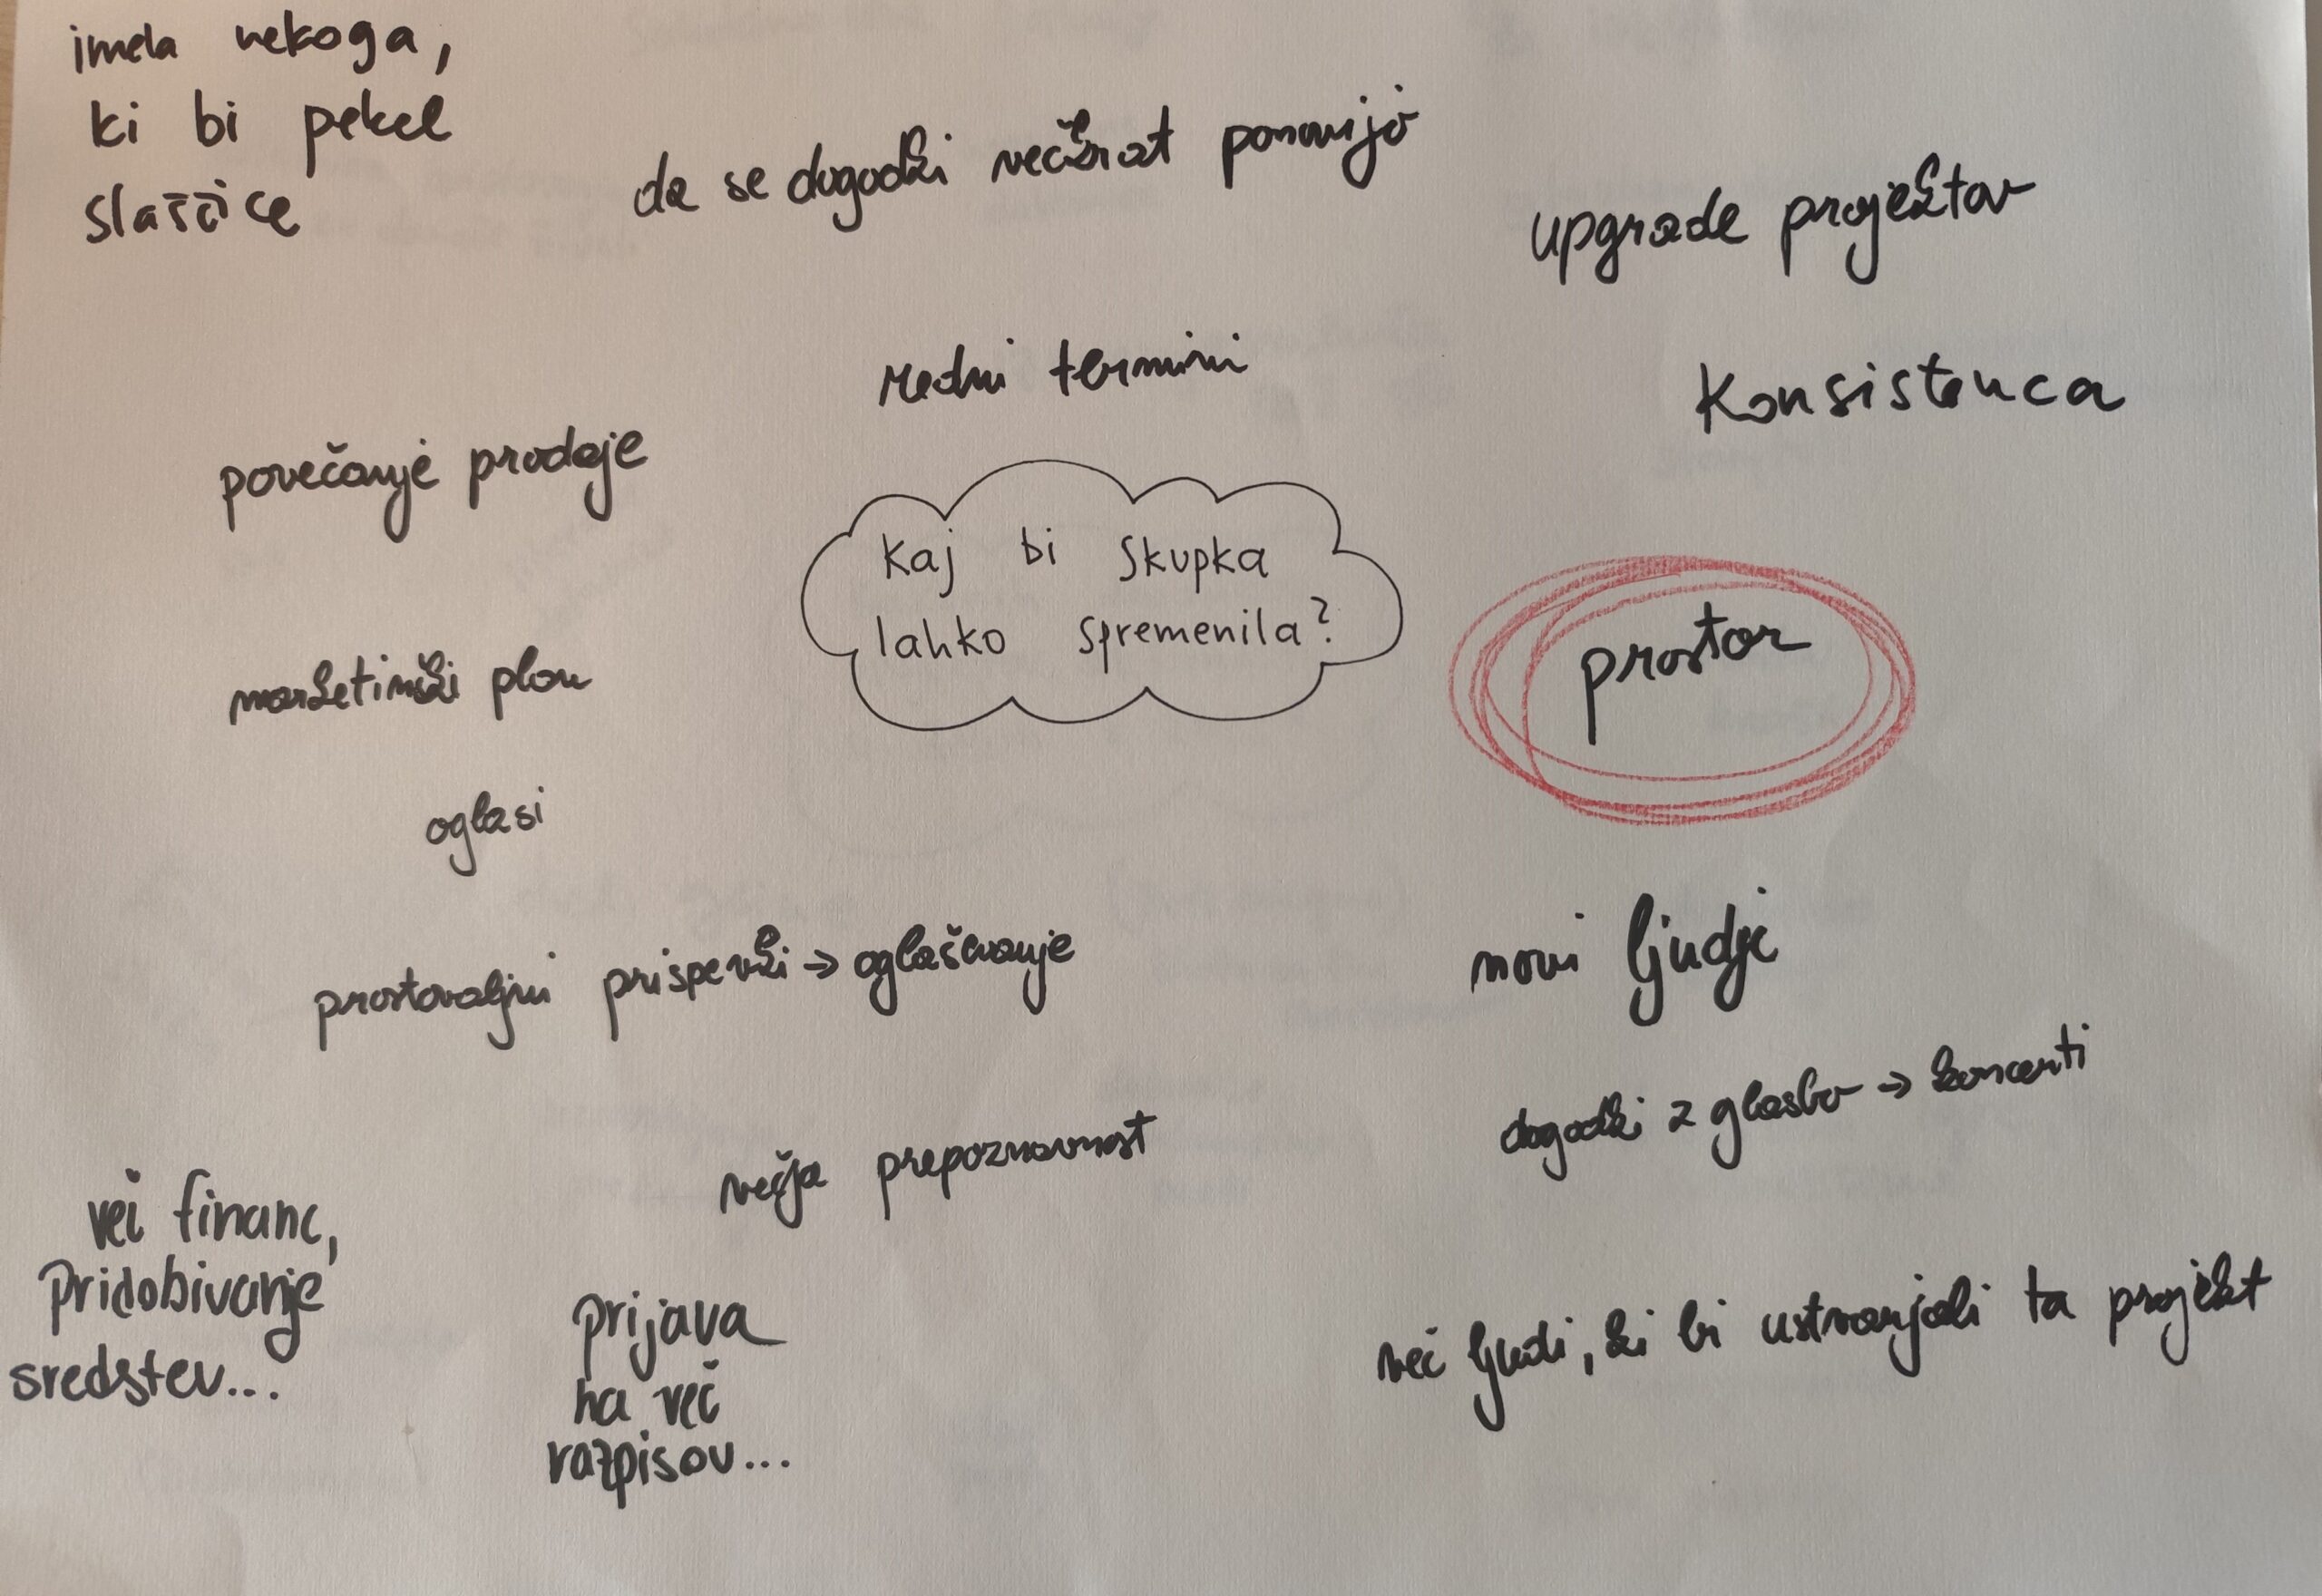 imela nekoga,
ki bi pekel
slaščice
da se dogodki večkrat ponovijo
upgrade projektov
redni termini
Konsistenca
povečanje prodaje
Kaj bi Skupka
lahko spremenila?
prostor
marketinški plan
oglasi
prostovoljni prispevki → oglaševanje
novi ljudje
dogodki z glasbo → koncerti
večja prepoznavnost
več financ,
Pridobivanje
sredstev...
prijava
na več
razpisov...
več ljudi, ki bi ustvarjali ta projekt